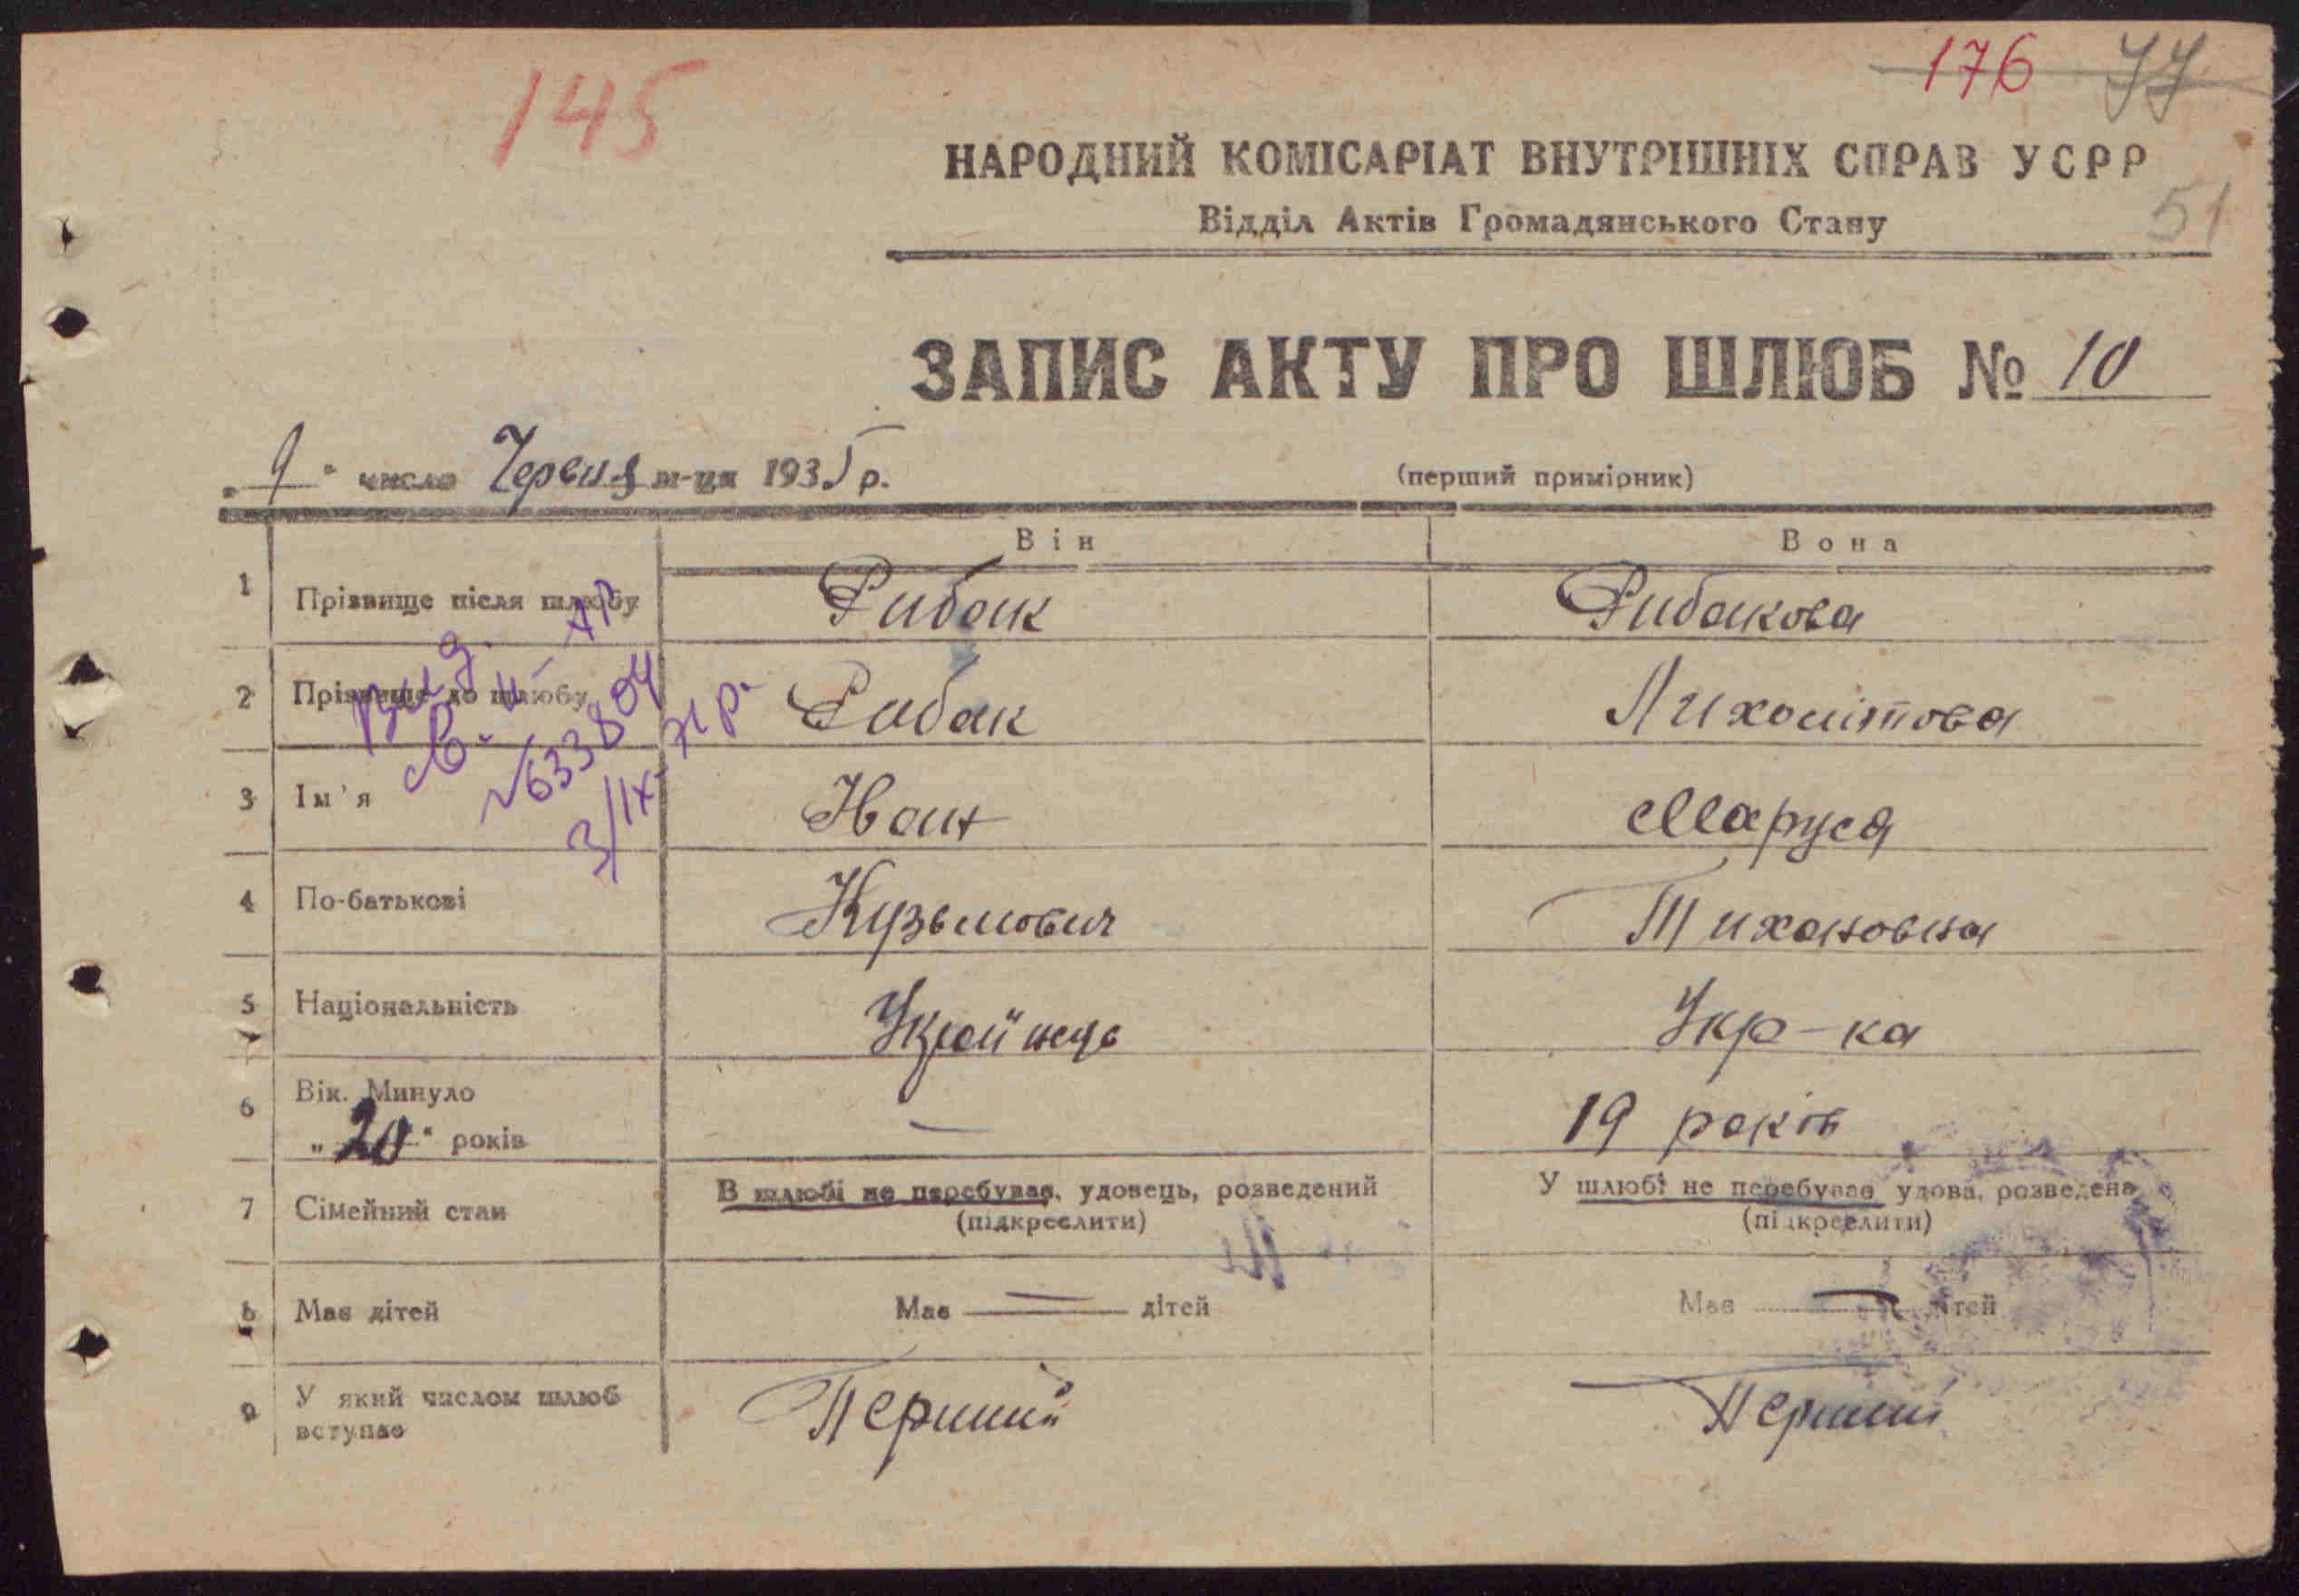 145
176 77
НАРОДНИЙ КОМІСАРІАТ ВНУТРІШНІХ СПРАВ УСРР
51
Відділ Актів Громадянського Стану
ЗАПИС АКТУ ПРО ШЛЮБ № 10
„9" число Червня м-ця 1935 р.
(перший примірник)
Він Вона
1 Прізвище після шлюбу Рибак Рибакова
2 Прізвище до шлюбу Рибак
№633804
3 Ім'я Иван Маруся
4 По-батькові Кузьмович Тихановна
5 Національність Українець Укр-ка
6 Вік. Минуло
„20" років — 19 років
7 Сімейний стан В шлюбі не перебував, удовець, розведений У шлюбі не перебувае удова, розведена
(підкреслити) (підкреслити)
8 Має дітей Має — дітей Має — дітей
9 У який числом шлюб
вступає Перший Перший